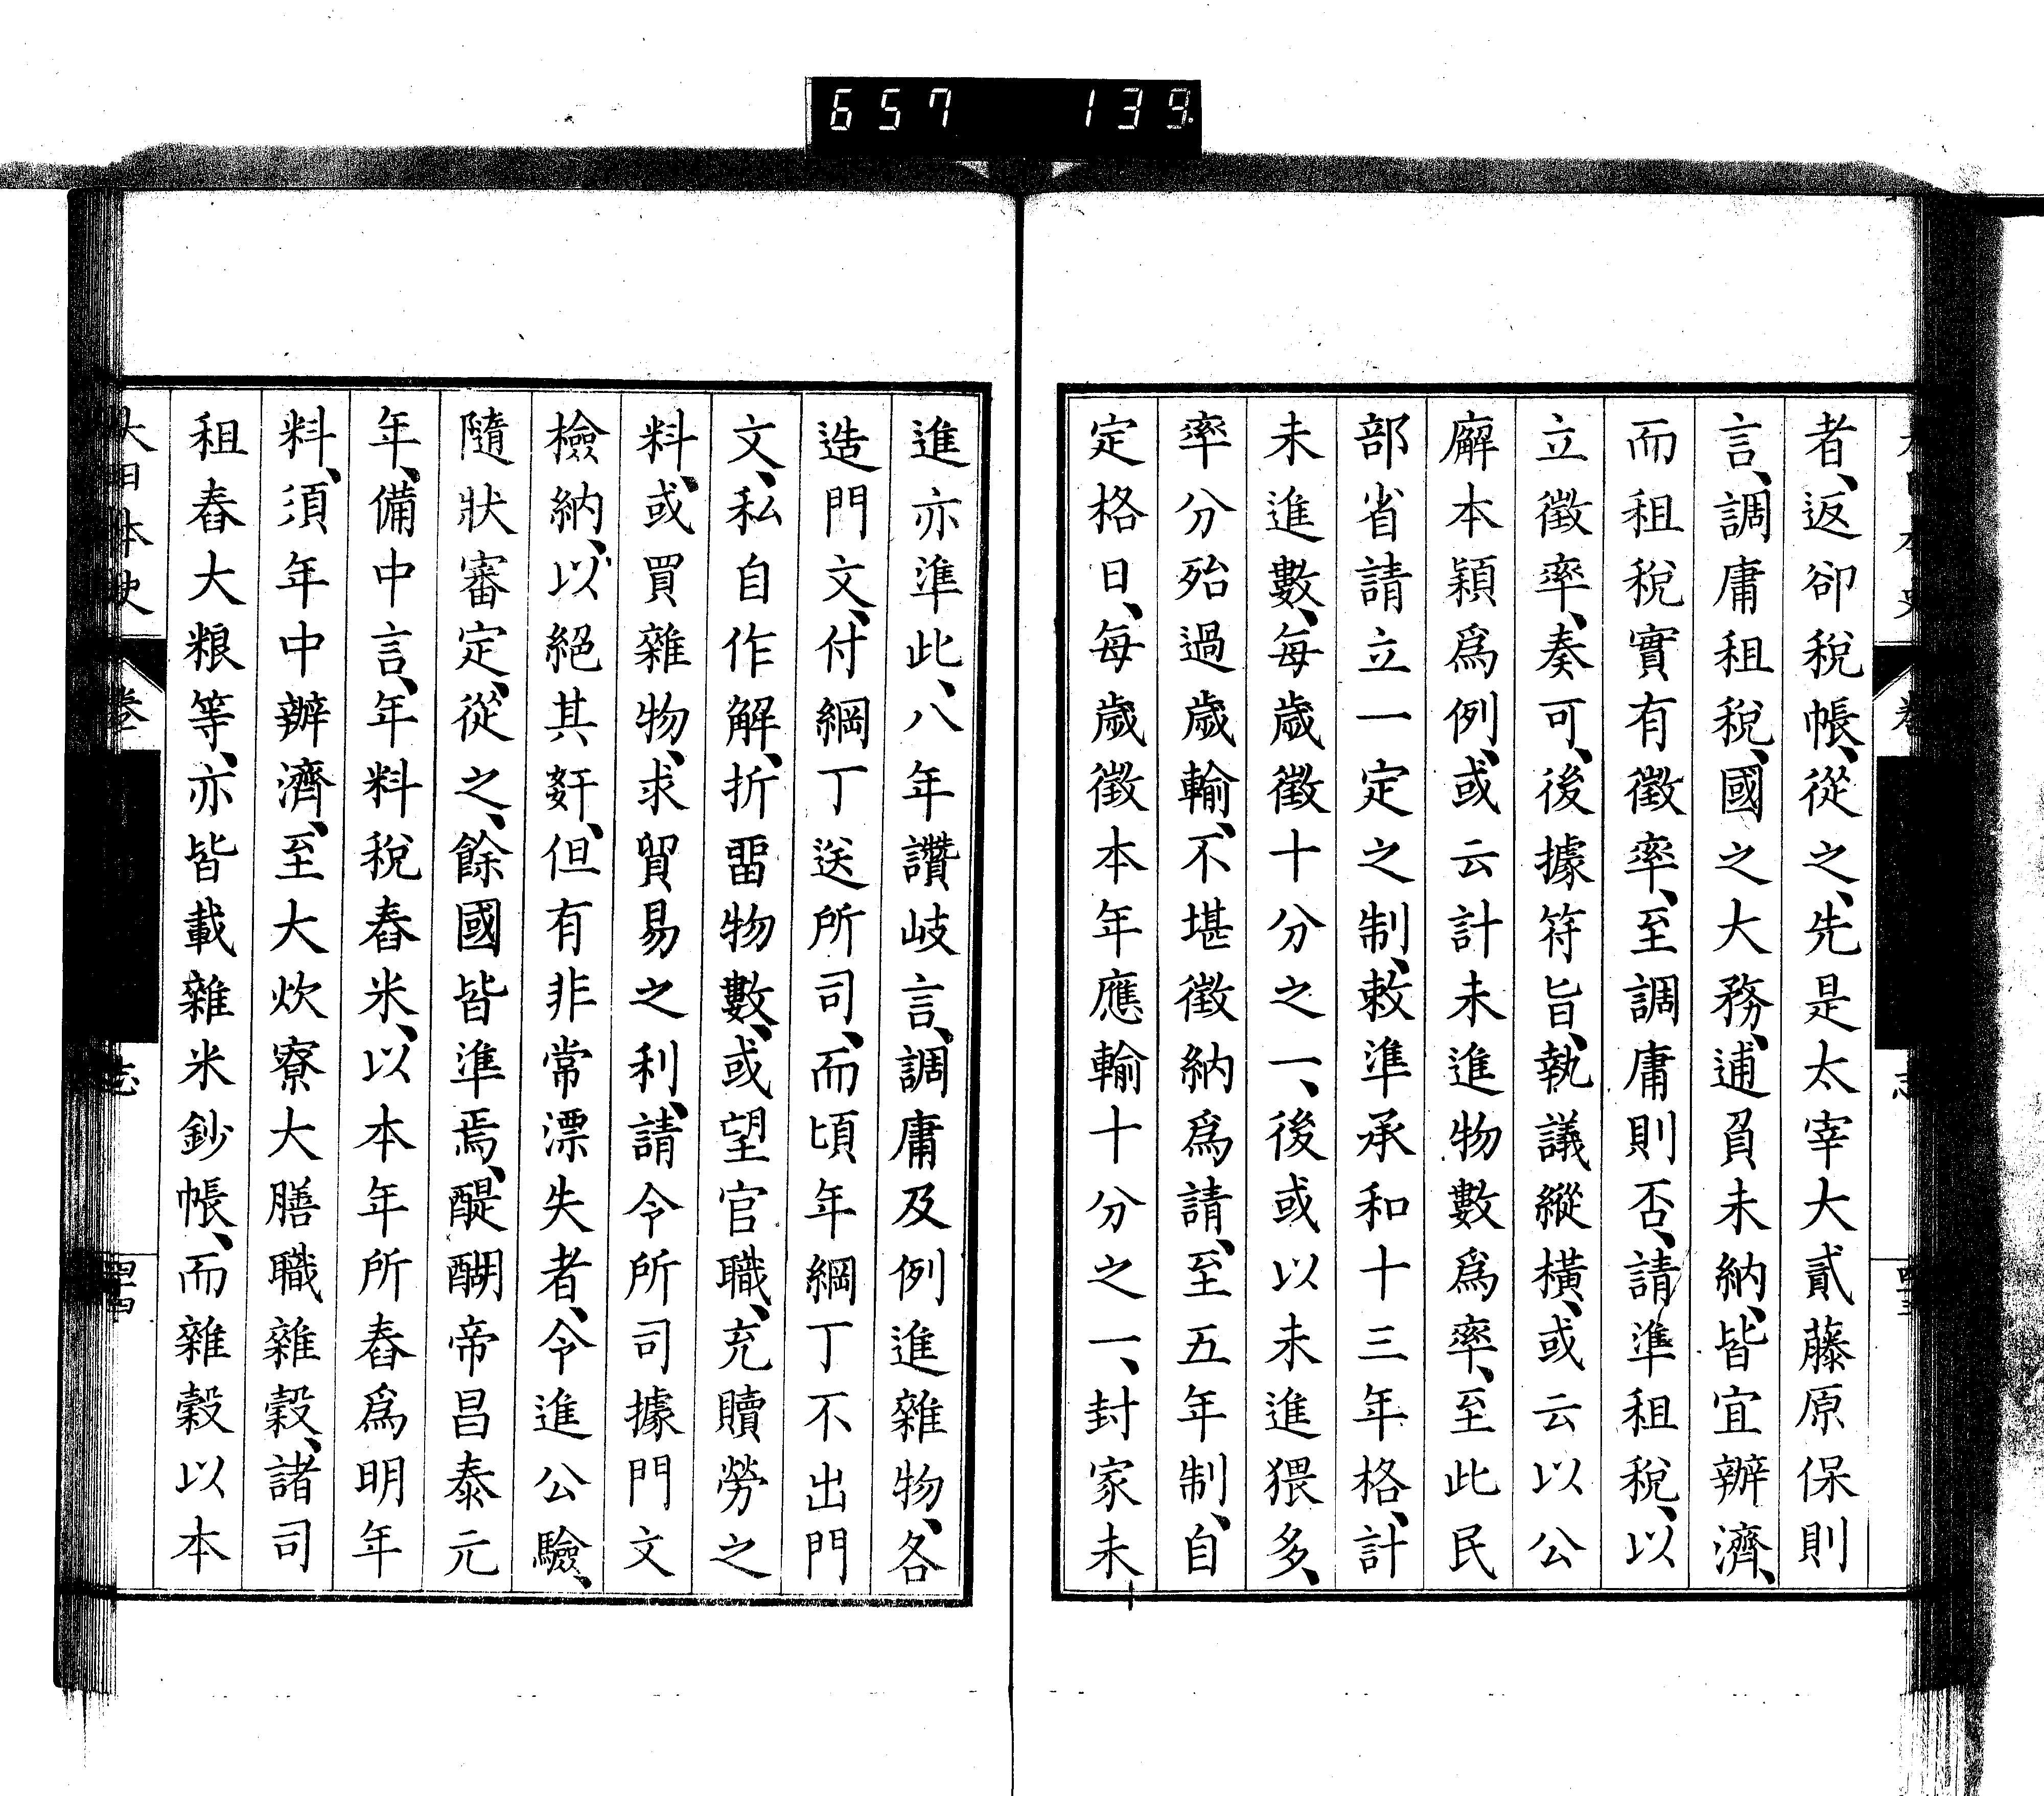 657 139
者、返卻稅帳、從之、先是太宰大貳藤原保則
言、調庸租稅、國之大務、逋負未納、皆宜辦濟、
而租稅實有徵率、至調庸則否、請準租稅、以
立徵率、奏可、後據符旨、執議縱橫、或云以公
廨本穎爲例、或云計未進物數爲率、至此民
部省請立一定之制、敕準承和十三年格、計
未進數、每歲徵十分之一、後或以未進猥多、
率分殆過歲輸、不堪徵納爲請、至五年制、自
定格日、每歲徵本年應輸十分之一、封家未
進亦準此、八年讚岐言、調庸及例進雜物、各
造門文、付綱丁送所司、而頃年綱丁不出門
文、私自作解、折畱物數、或望官職、充贖勞之
料、或買雜物、求貿易之利、請令所司據門文
檢納、以絕其姧、但有非常漂失者、令進公驗、
隨狀審定、從之、餘國皆準焉、醍醐帝昌泰元
年、備中言、年料稅舂米、以本年所舂爲明年
料、須年中辦濟、至大炊寮大膳職雜穀、諸司
租舂大粮等、亦皆載雜米鈔帳、而雜穀以本
大日本史 卷 志 四十四